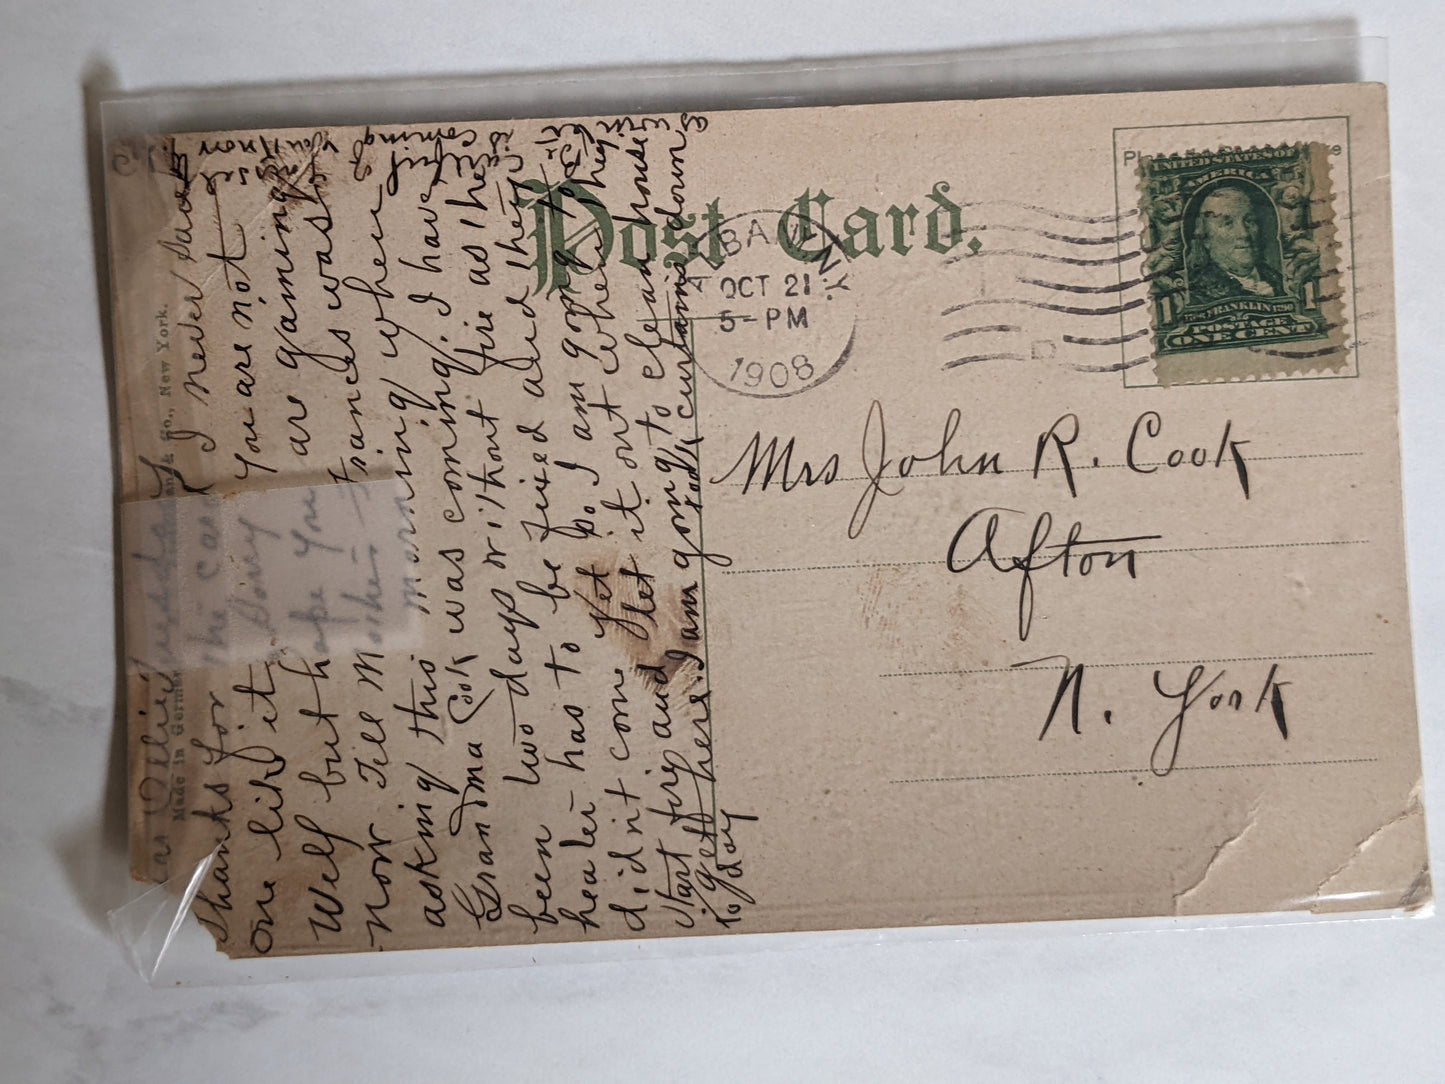 Post Card.
ALBANY, N.Y.
OCT 21
5 - PM
1908
UNITED STATES OF
AMERICA
FRANKLIN
POSTAGE
1 ONE CENT 1
Mrs John R. Cook
Afton
N. York
Made in Germany
Co., New York.
Dear Ollie
Thanks for the card I never saw
one like it. Sorry You are not
Well but hope You are gaining
now Till Mother Frances was
asking this morning when
Grandma Cook was coming. I have
been two days without fire as the
heater has to be fixed and they
didnt come Yet So I am going to
start fire and let it out when they
get here. I am going to clean house
to day
took curtains down